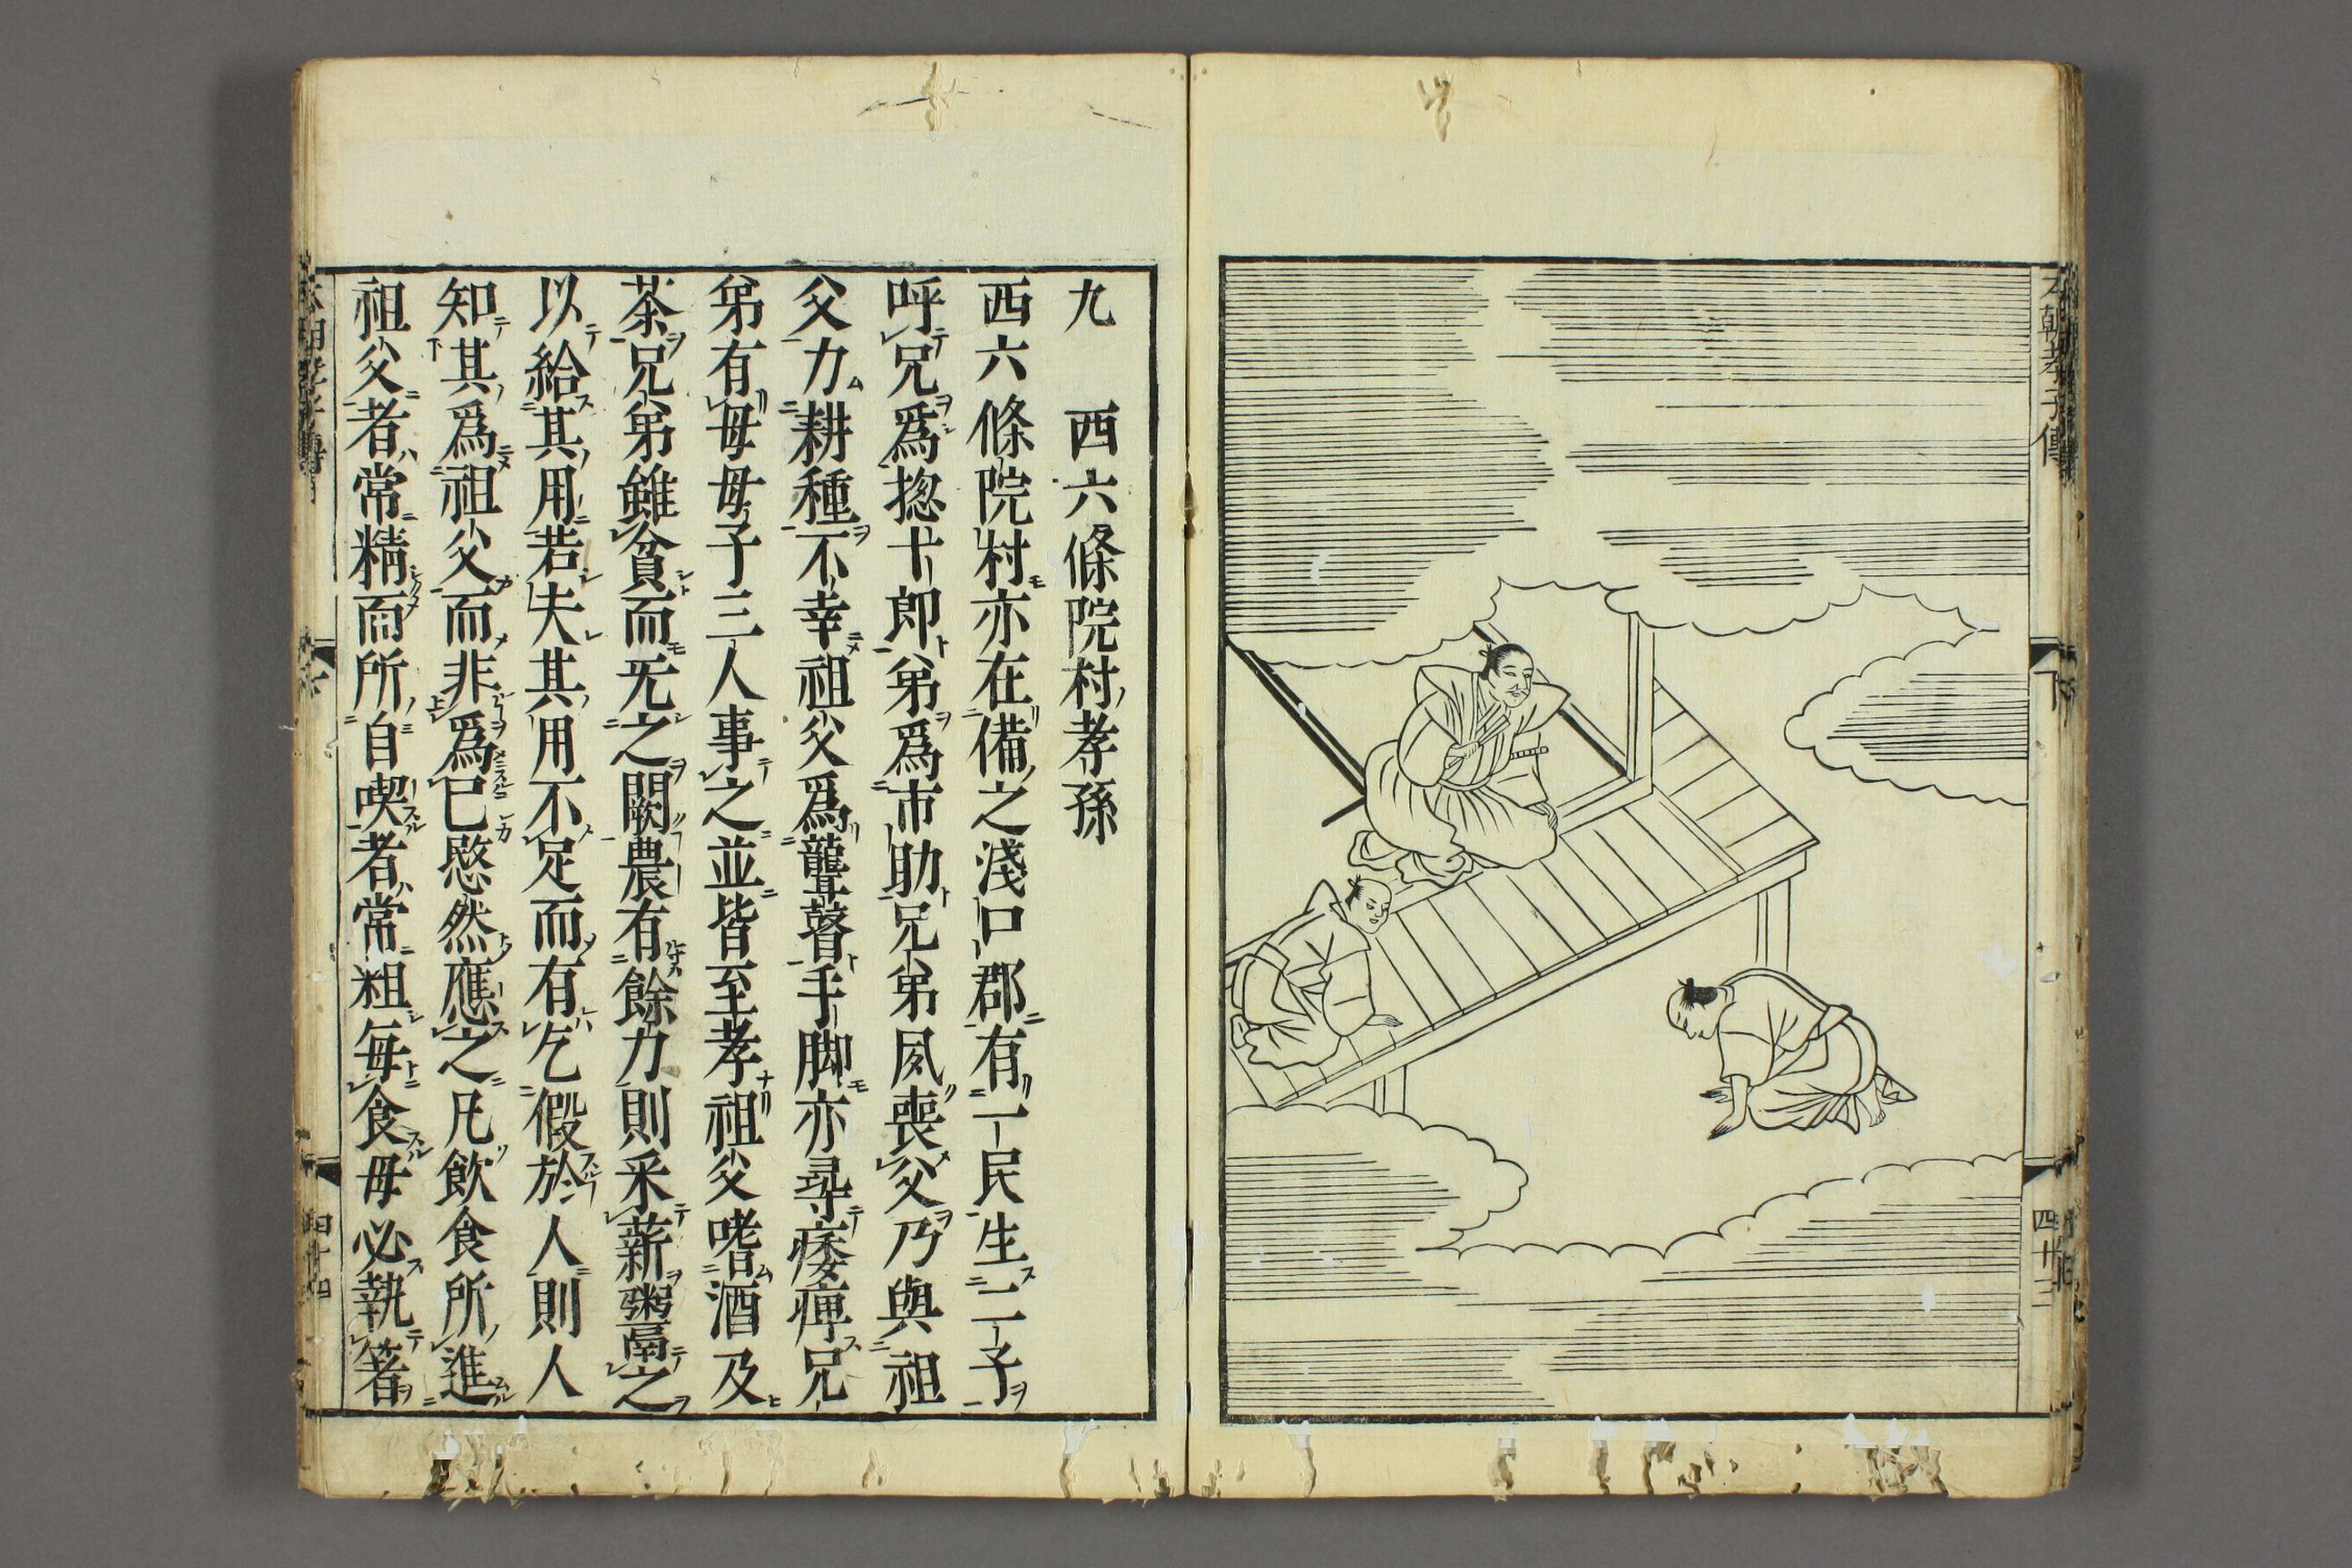 本朝孝子傳 下 四十三
九 西六條院村孝孫
西六條院村亦在備之淺口郡有一民生二子
呼兄爲揔十郎弟爲市助兄弟夙喪父乃與祖
父力耕種不幸祖父爲聾瞽手脚亦尋痿痺兄
弟有母母子三人事之並皆至孝祖父嗜酒及
茶兄弟雖貧而无之闕農有餘力則采薪鬻之
以給其用若夫其用不足而有乞假於人則人
知其爲祖父而非爲已愍然應之凡飲食所進
祖父者常精而所自喫者常粗毎食母必執箸